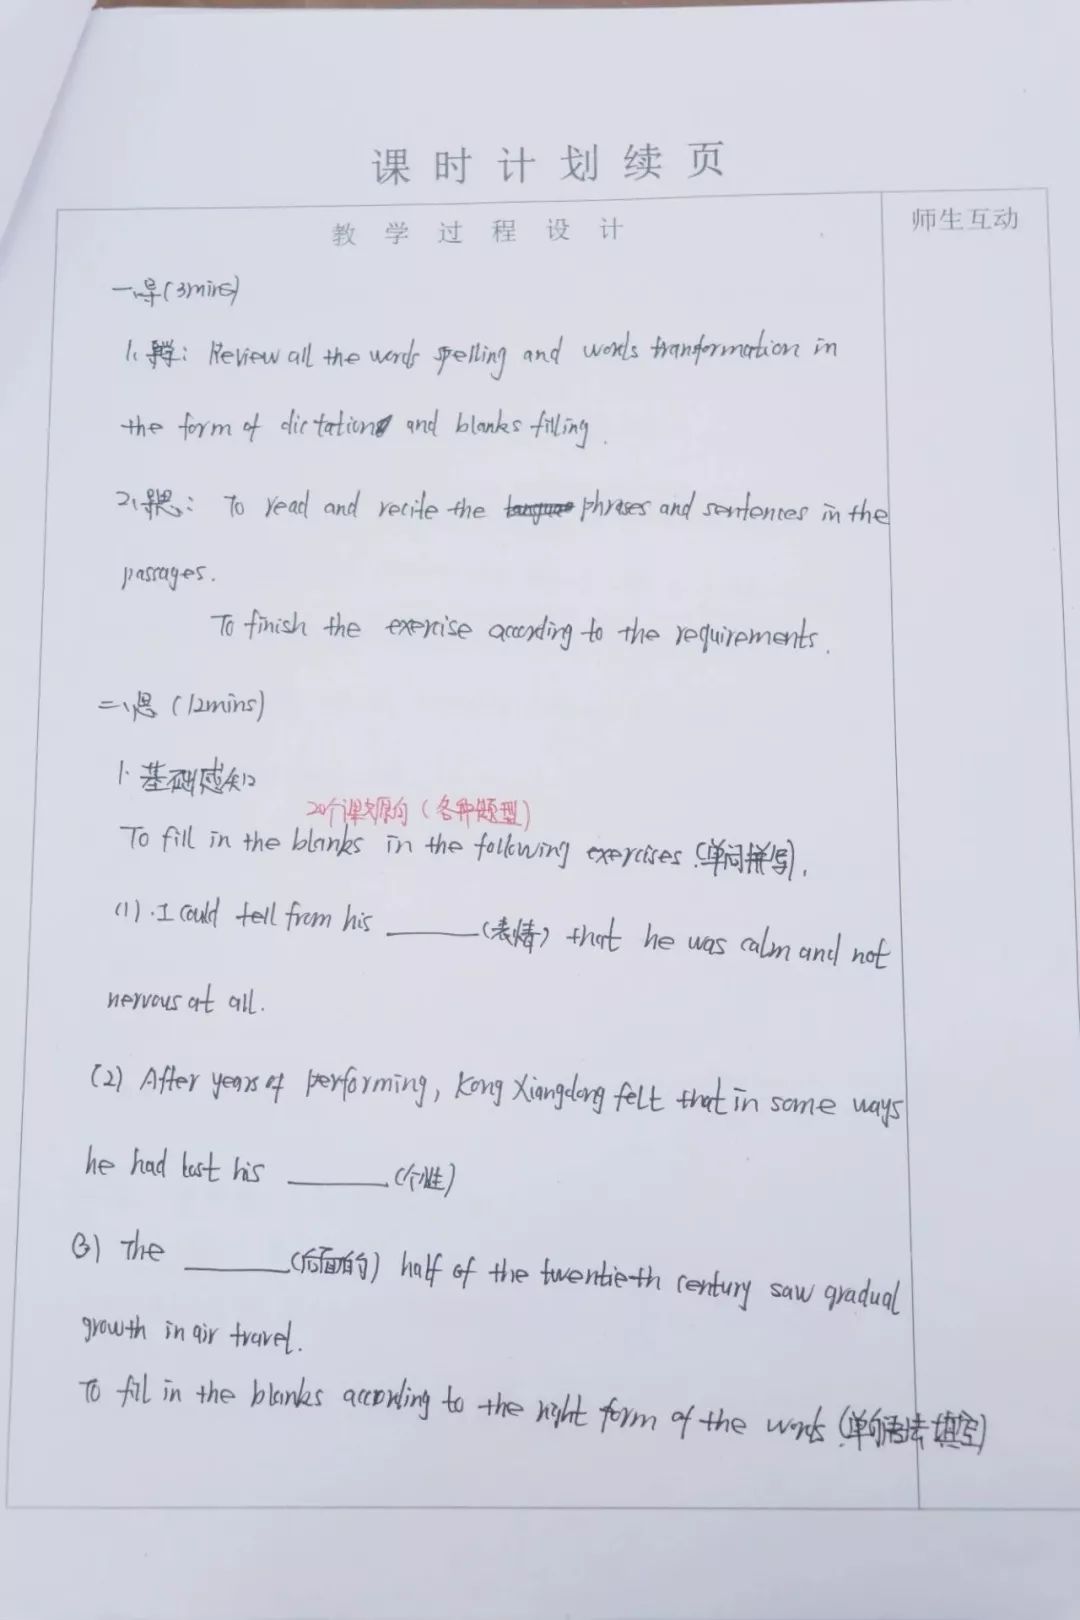 课时计划续页
教学过程设计
师生互动
一、导(3mins)
1、导学: Review all the words spelling and words tranformation in
the form of dictation and blanks filling.
2、导思: To read and recite the phrases and sentences in the
passages.
To finish the exercise according to the requirements.
二、思 (12mins)
1. 基础感知
20个课文原句(各种题型)
To fill in the blanks in the following exercises (单词拼写).
(1). I could tell from his ______(表情) that he was calm and not
nervous at all.
(2) After years of performing, Kong Xiangdong felt that in some ways
he had lost his ______(个性)
(3) The ______(后面的) half of the twentieth century saw gradual
growth in air travel.
To fill in the blanks according to the right form of the words (单句语法填空)